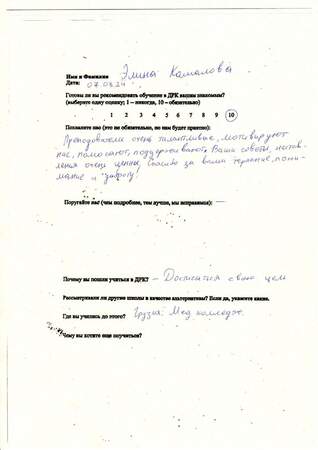 Имя и Фамилия Элина Камалова
Дата: 07.08.24
Готовы ли вы рекомендовать обучение в ДРК вашим знакомым?
(выберите одну оценку; 1 – никогда, 10 – обязательно)
1 2 3 4 5 6 7 8 9 10
Похвалите нас (это не обязательно, но нам будет приятно):
Преподователи очень талантливые, мотивируют
нас, помогают, поддерживают. Ваши советы, настав-
ления очень ценны, Спасибо за ваши терпение, пони-
мание и заботу!
Поругайте нас (чем подробнее, тем лучше, мы исправимся):
Почему вы пошли учиться в ДРК? – Достигать свою цель
Рассматривали ли другие школы в качестве альтернативы? Если да, укажите какие.
Где вы учились до этого? Грузия: Мед колледж.
Чему вы хотите еще научиться?